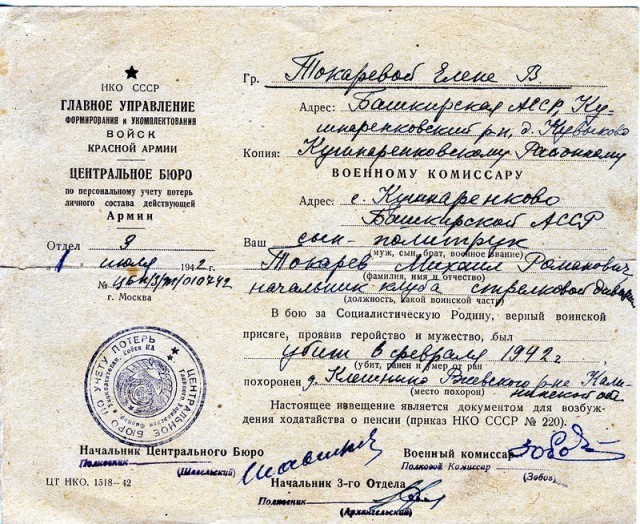 НКО СССР
ГЛАВНОЕ УПРАВЛЕНИЕ
ФОРМИРОВАНИЯ и УКОМПЛЕКТОВАНИЯ
ВОЙСК
КРАСНОЙ АРМИИ
ЦЕНТРАЛЬНОЕ БЮРО
по персональному учету потерь
личного состава действующей
Армии
Отдел 9
1 июля 1942 г.
№
г. Москва
ЦЕНТРАЛЬНОЕ БЮРО ПО УЧЕТУ ПОТЕРЬ
Гр. Токаревой Елене В
Адрес: Башкирская АССР, Ку-
шнаренковский р-н, д. Кувыково
Копия: Кушнаренковскому Районному
ВОЕННОМУ КОМИССАРУ
Адрес: с. Кушнаренково
Башкирской АССР
Ваш сын - политрук
(муж, сын, брат, военное звание)
Токарев Михаил Романович
(фамилия, имя и отчество)
начальник клуба стрелковой дивизии
(должность, какой воинской части)
В бою за Социалистическую Родину, верный воинской
присяге, проявив геройство и мужество, был
убит в феврале 1942 г.
(убит, ранен и умер от ран)
похоронен д. Клешнино Ржевского р-на Кали-
нинской об
(место похорон)
Настоящее извещение является документом для возбуж-
дения ходатайства о пенсии (приказ НКО СССР № 220).
Начальник Центрального Бюро
Полковник
(Шавельский)
Военный комиссар
Полковой Комиссар
(Зобов)
Начальник 3-го Отдела
Полковник
(Архангельский)
ЦТ НКО. 1518—42